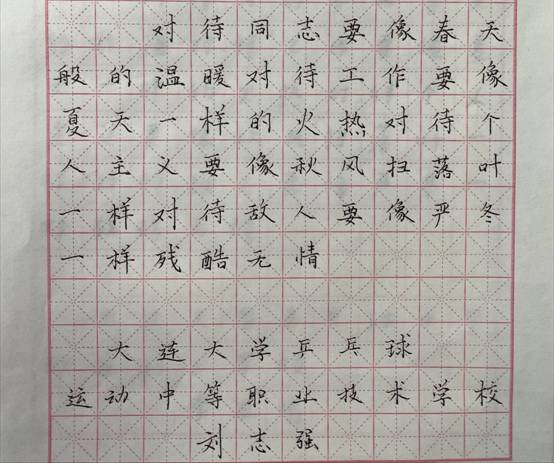 对待同志要像春天
般的温暖对待工作要像
夏天一样的火热对待个
人主义要像秋风扫落叶
一样对待敌人要像严冬
一样残酷无情
大连大学乒乓球
运动中等职业技术学校
刘志强